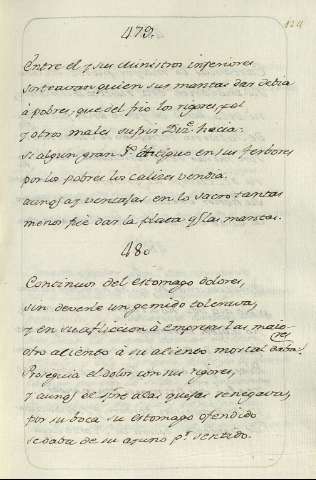 479.
124
Entre el y sus Ministros inferiores
sorteavan quien sus mantas dar debia
à pobres, que del frio los rigores,
y otros males sufrir hacia.
Si algun gran antiguo en sus ferbores
por los pobres los calizes vendia.
aunq̃ ay ventajas en lo sacro tantas
menor fue dar la plata q̃ las mantas.
480
Continuos del estomago dolores,
sin deverle un gemido tolerava,
y en su afliccion à empresas las maio-
res
otro aliento à su aliento mortal daba.
Proseguia el dolor con sus rigores,
y aunq̃ de spre alas quejas se negava,
por su boca su estomago ofendido
se daba de su ayuno pr. sentido.